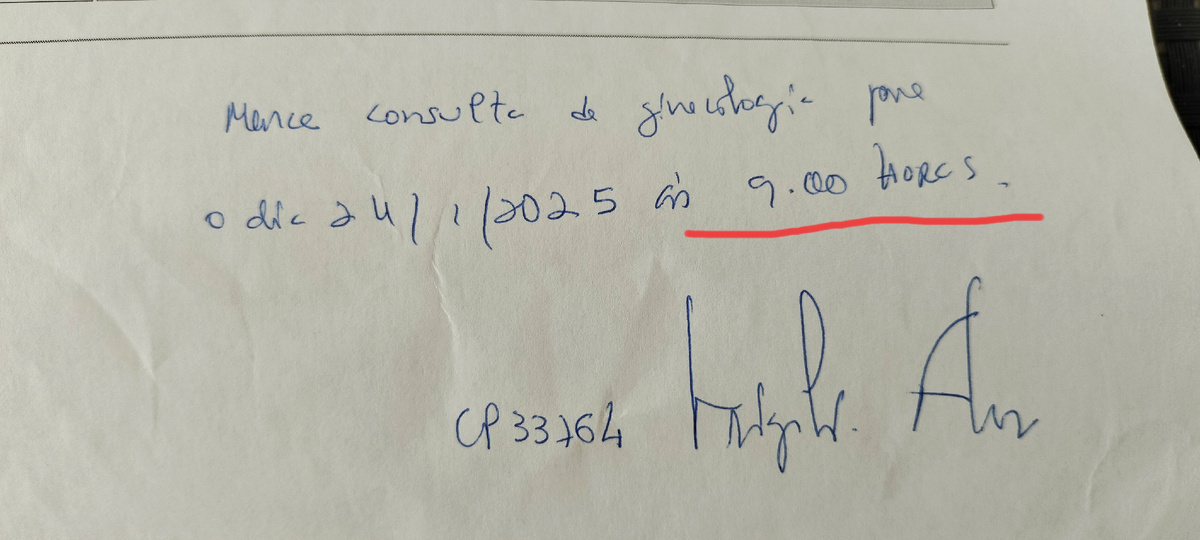 Marca consulta de ginecologia para
o dia 24/1/2025 às 9.00 horas.
CP 33764